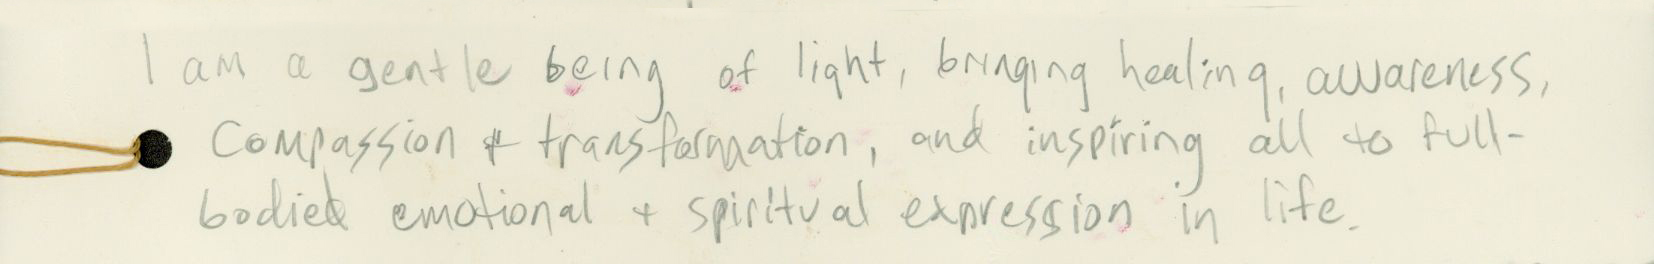 I am a gentle being of light, bringing healing, awareness,
Compassion & transformation, and inspiring all to full-
bodied emotional + spiritual expression in life.